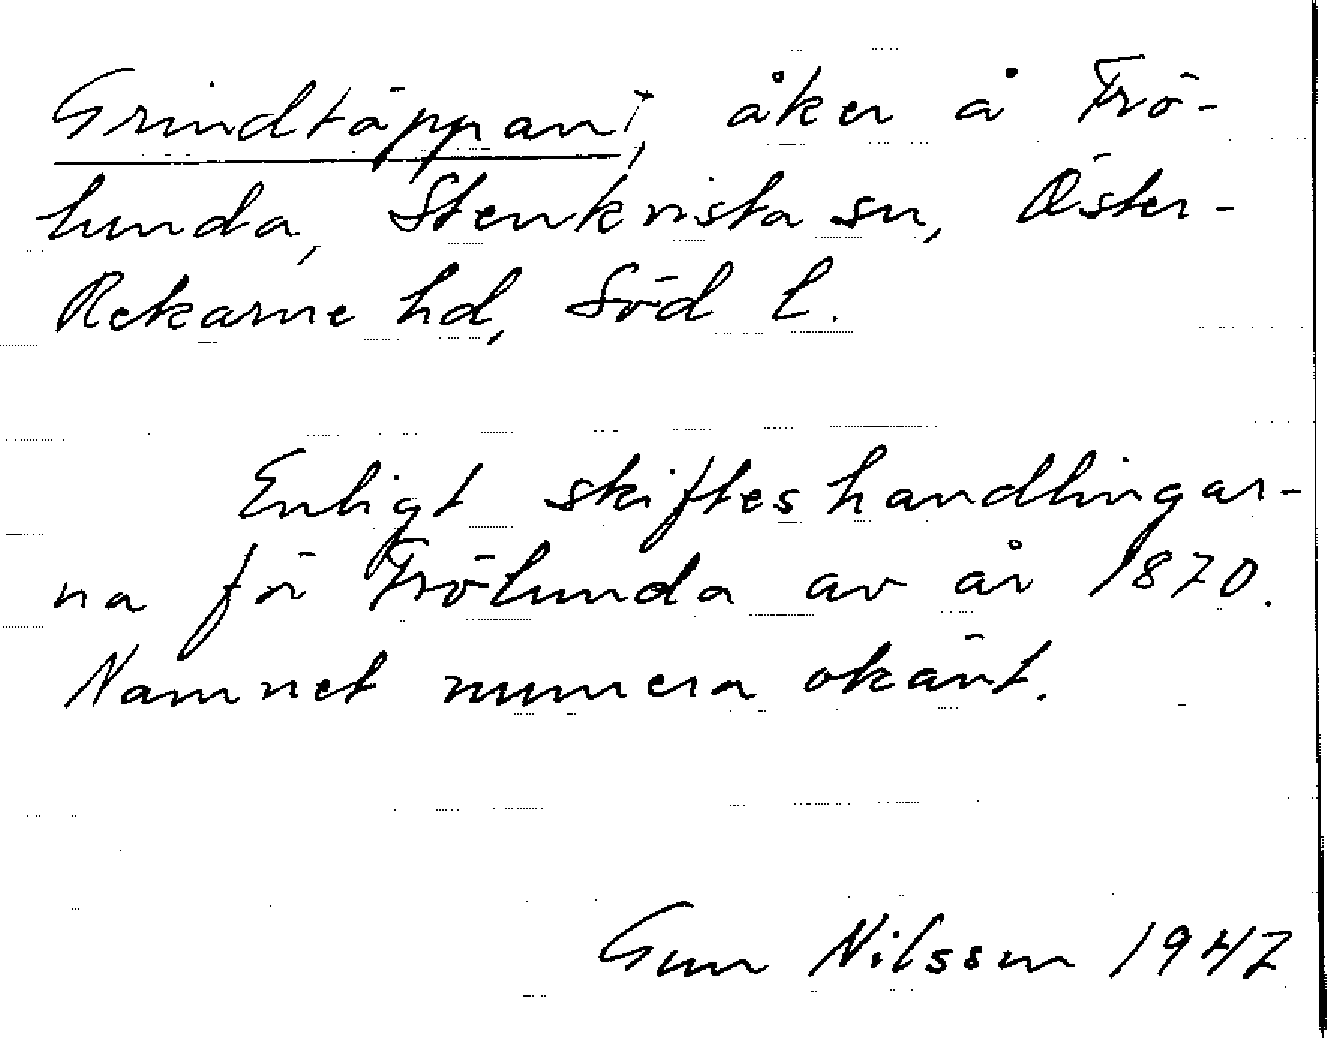 Grindtäppan†, åker å Frö-
lunda, Stenkvista sn, Öster-
Rekarne hd, Söd l.
Enligt skifteshandlingar-
na för Frölunda av år 1870.
Namnet numera okänt.
Gun Nilsson 1947